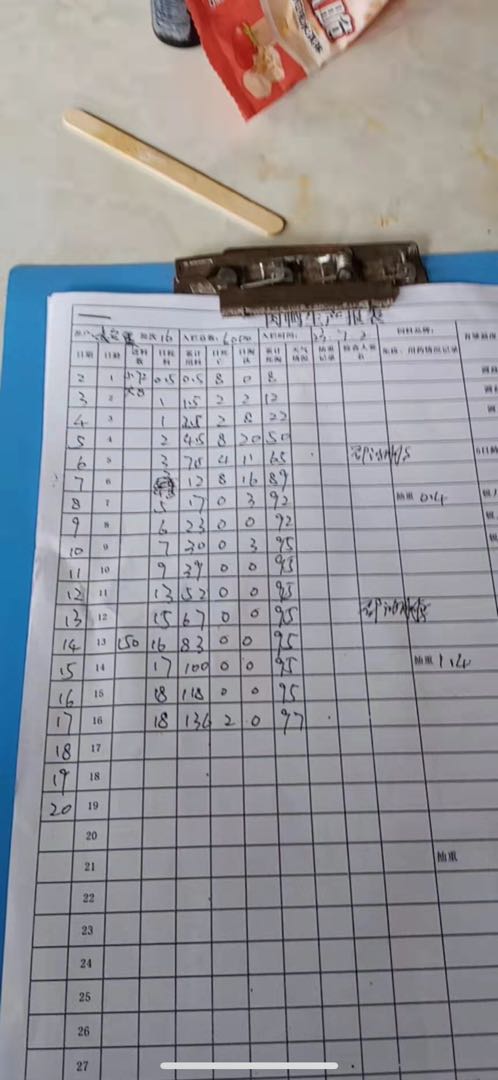 肉鸭生产报表
批次 16 入栏总数: 6000 入栏时间:
日期 日龄 进料数 日耗料 累计用料 日死亡 日淘汰 累计死淘 天气情况 抽重记录 检查人签名 免疫、用药情况记录
2 1 0.5 0.5 8 0 8
3 2 1 1.5 2 2 12
4 3 1 2.5 2 8 22
5 4 2 4.5 8 20 50
6 5 3 7.5 4 11 65
7 6 12 8 16 89
8 7 5 17 0 3 92 抽重 0.4
9 8 6 23 0 0 92
10 9 7 30 0 3 95
11 10 9 39 0 0 95
12 11 13 52 0 0 95
13 12 15 67 0 0 95
14 13 150 16 83 0 0 95
15 14 17 100 0 0 95 抽重 1.14
16 15 18 118 0 0 95
17 16 18 136 2 0 97
18 17
19 18
20 19
20
21 抽重
22
23
24
25
26
27